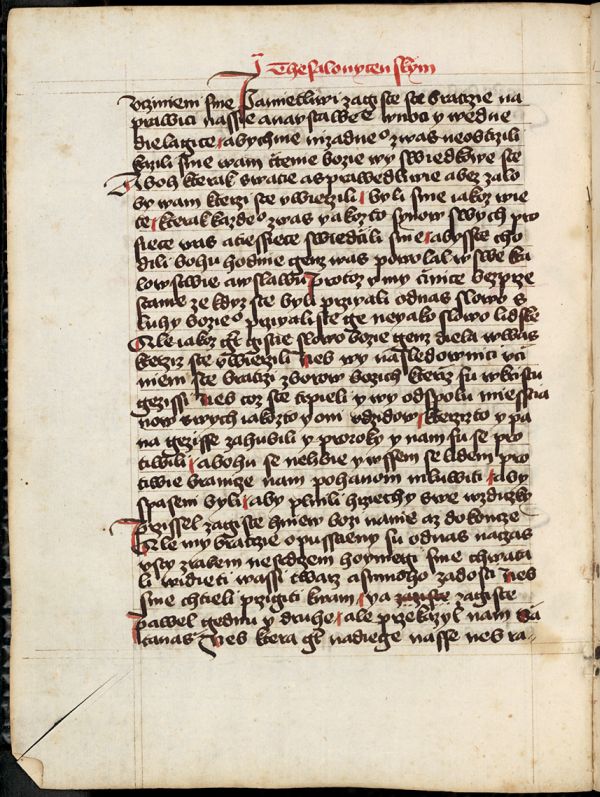 J Thesalonycenskym
vczinieni sme Pamietliwi zagiste ste bratzie na
prawici nassie a navstawee wnoci y wedne
dielagice abychme nizadneo zwas neobtizili
kazili sme wam ctenie bozie wy swiedkwe ste
A boh kterak swatie a sprawedliwie a bez zalo
by wam kterzi ste vwierzili byli sme iakoz wie
te kterak kazdeo zwas yakozto synow swych pro
siece was a tiessiece swiedcili sme abysste cho
dili bohu hodnie genz was powolal w swe kra
lowstwie a w slawu Protoz y my cinice bezprze
stanie ze kdyz ste byli przigali od nas slowo s
luchy bozieo przigali ste ge ne yako slowo lidske
Ale iakoz gt gistie slowo bozie genz diela w was
kterziz ste vwierzili Nes wy nasledownici vci
nieni ste bratzi zborow bozich kteriz su w kristu
gezissi Nes toz ste trpieli y wy od spolu miessta
now swych iakozto y oni od zidow kterzizto y pa
na gezisse zahubili y proroky y nam su se pro
tiwili a bohu se nelibie y wssem se lidem pro
tiwie braniece nam pohanom mluwiti aby
spaseni byli aby plnili hriechy swe wzdycky
Przissel zagiste hniew bozi na nie az do koncze
Ale my bratzie opusstieny su od nas na czas
vsty zrakem ne srdczem hoyniegi sme chwata
li widieti wassi twarz a s mnoho zadosti Nes
sme chtieli przigiti k wam y a zagiste zagiste
pawel gednu y druhe ale przekazyl nam sa
tanas Nes ktera gt nadiege nasse nes ra-